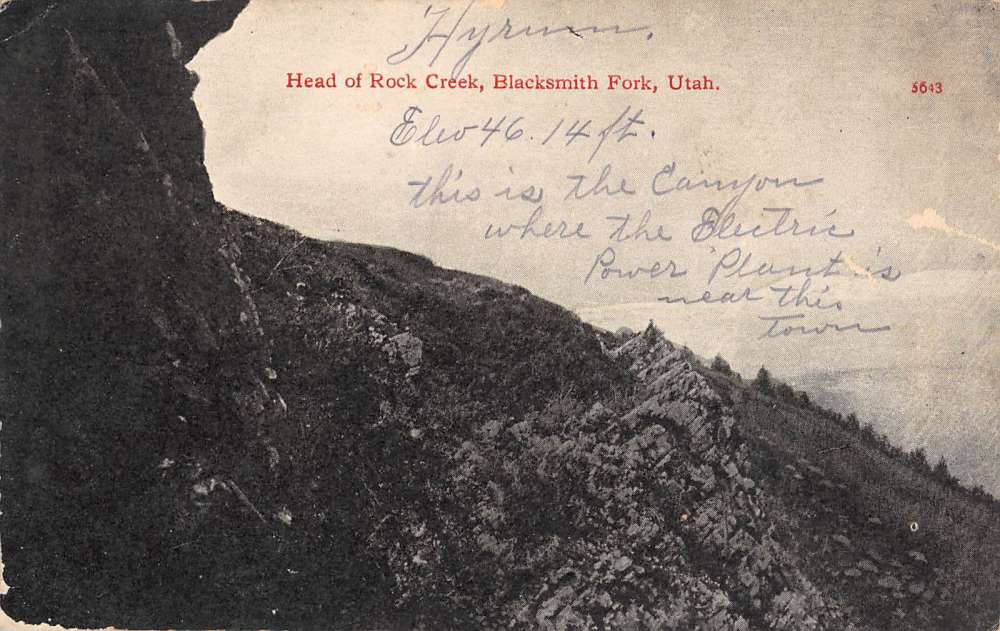 Hyrum.
Head of Rock Creek, Blacksmith Fork, Utah. 5643
Elev 46.14 ft.
this is the Canyon
where the Electric
Power Plant is
near this
Town